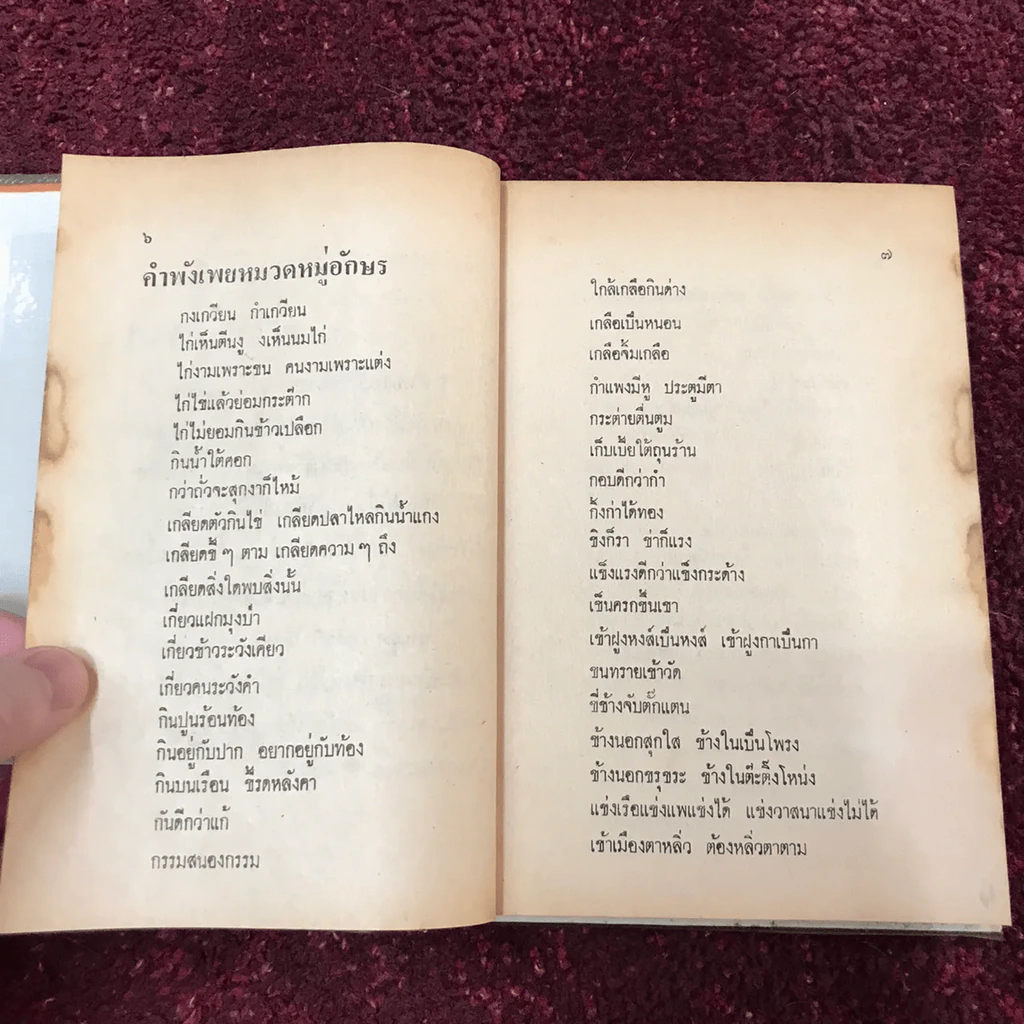 ๖
คำพังเพยหมวดหมู่อักษร
กงเกวียน กำเกวียน
ไก่เห็นตีนงู งเห็นนมไก่
ไก่งามเพราะขน คนงามเพราะแต่ง
ไก่ไข่แล้วย่อมกระต๊าก
ไก่ไม่ยอมกินข้าวเปลือก
กินน้ำใต้ศอก
กว่าถั่วจะสุกงาก็ไหม้
เกลียดตัวกินไข่ เกลียดปลาไหลกินน้ำแกง
เกลียดขี้ ๆ ตาม เกลียดความ ๆ ถึง
เกลียดสิ่งใดพบสิ่งนั้น
เกี่ยวแฝกมุงป่า
เกี่ยวข้าวระวังเคียว
เกี่ยวคนระวังคำ
กินปูนร้อนท้อง
กินอยู่กับปาก อยากอยู่กับท้อง
กินบนเรือน ขี้รดหลังคา
กันดีกว่าแก้
กรรมสนองกรรม
๗
ใกล้เกลือกินด่าง
เกลือเป็นหนอน
เกลือจิ้มเกลือ
กำแพงมีหู ประตูมีตา
กระต่ายตื่นตูม
เก็บเบี้ยใต้ถุนร้าน
กอบดีกว่ากำ
กิ้งก่าได้ทอง
ขิงก็รา ข่าก็แรง
แข็งแรงดีกว่าแข็งกระด้าง
เข็นครกขึ้นเขา
เข้าฝูงหงส์เป็นหงส์ เข้าฝูงกาเป็นกา
ขนทรายเข้าวัด
ขี่ช้างจับตั๊กแตน
ข้างนอกสุกใส ข้างในเป็นโพรง
ข้างนอกขรุขระ ข้างในต๊ะติ๊งโหน่ง
แข่งเรือแข่งแพแข่งได้ แข่งวาสนาแข่งไม่ได้
เข้าเมืองตาหลิ่ว ต้องหลิ่วตาตาม